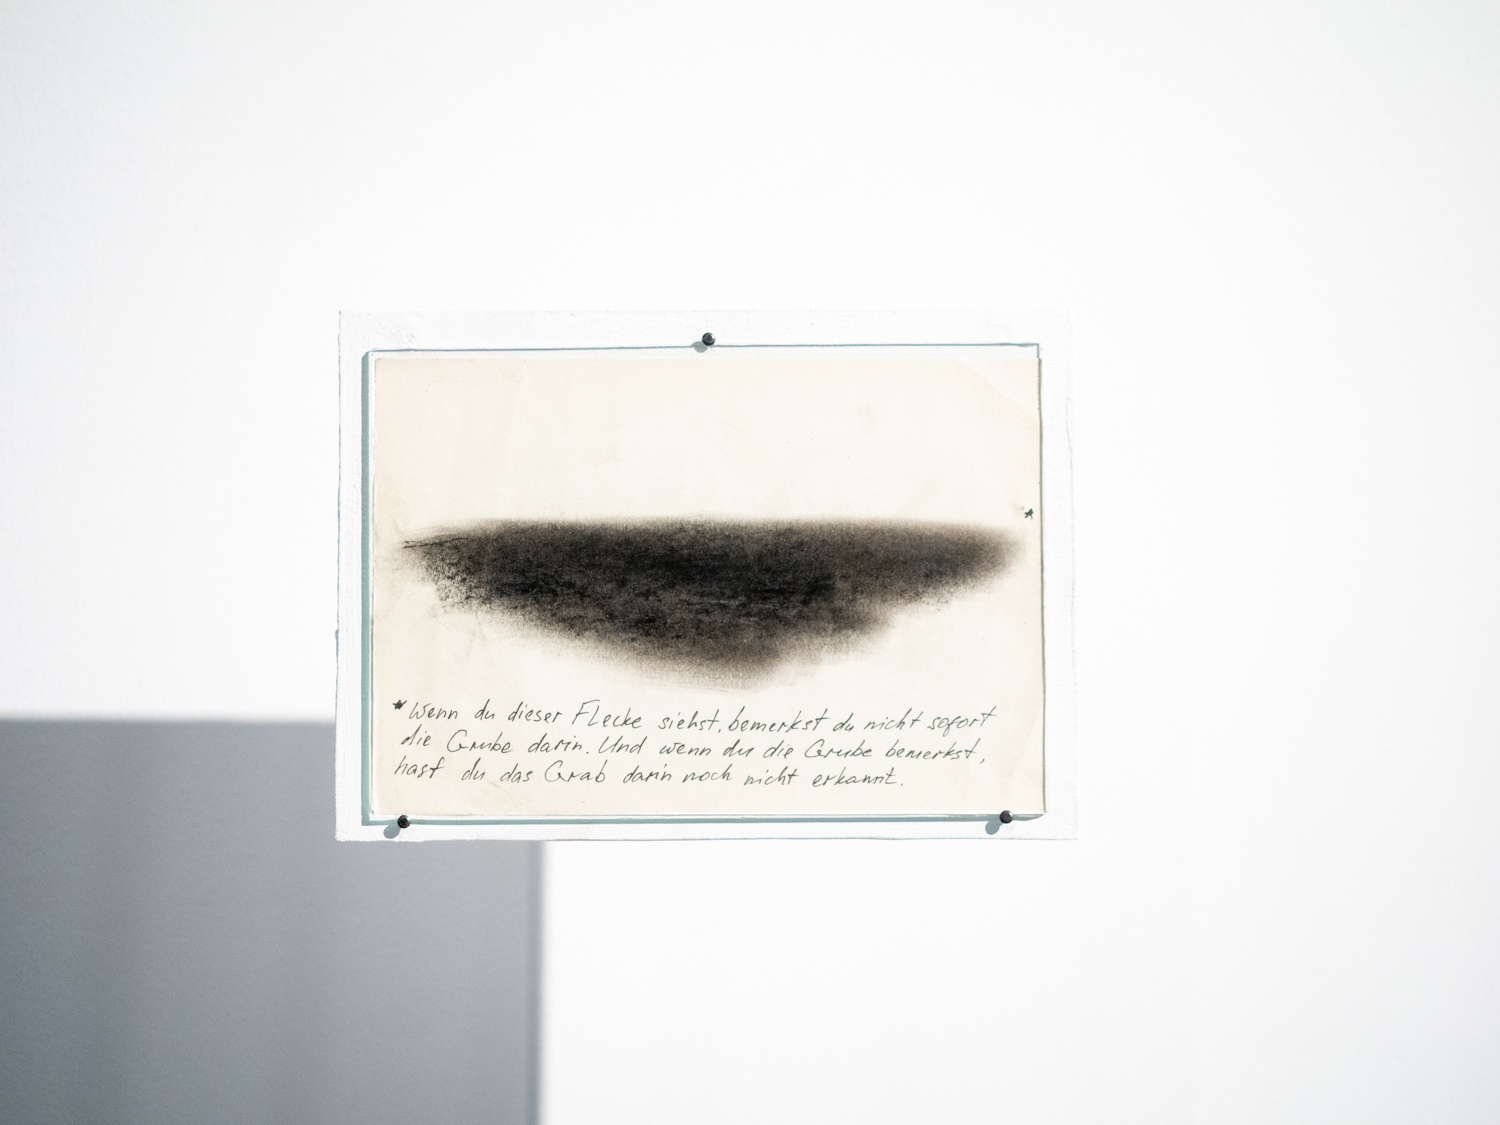 * Wenn du dieser Flecke siehst, bemerkst du nicht sofort
die Grube darin. Und wenn du die Grube bemerkst,
hast du das Grab darin noch nicht erkannt.